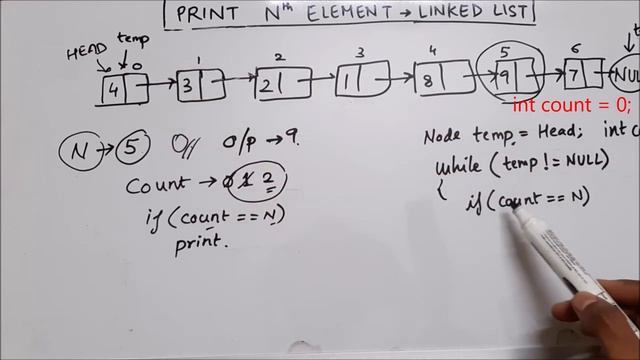 PRINT Nth ELEMENT → LINKED LIST
HEAD temp
0 1 2 3 4 5 6
4 3 2 1 8 9 7 NULL
int count = 0;
N → 5 O/P → 9.
Node temp = Head; int c
Count → 0 1 2
while (temp != NULL)
{ if (count == N)
if (count == N)
print.